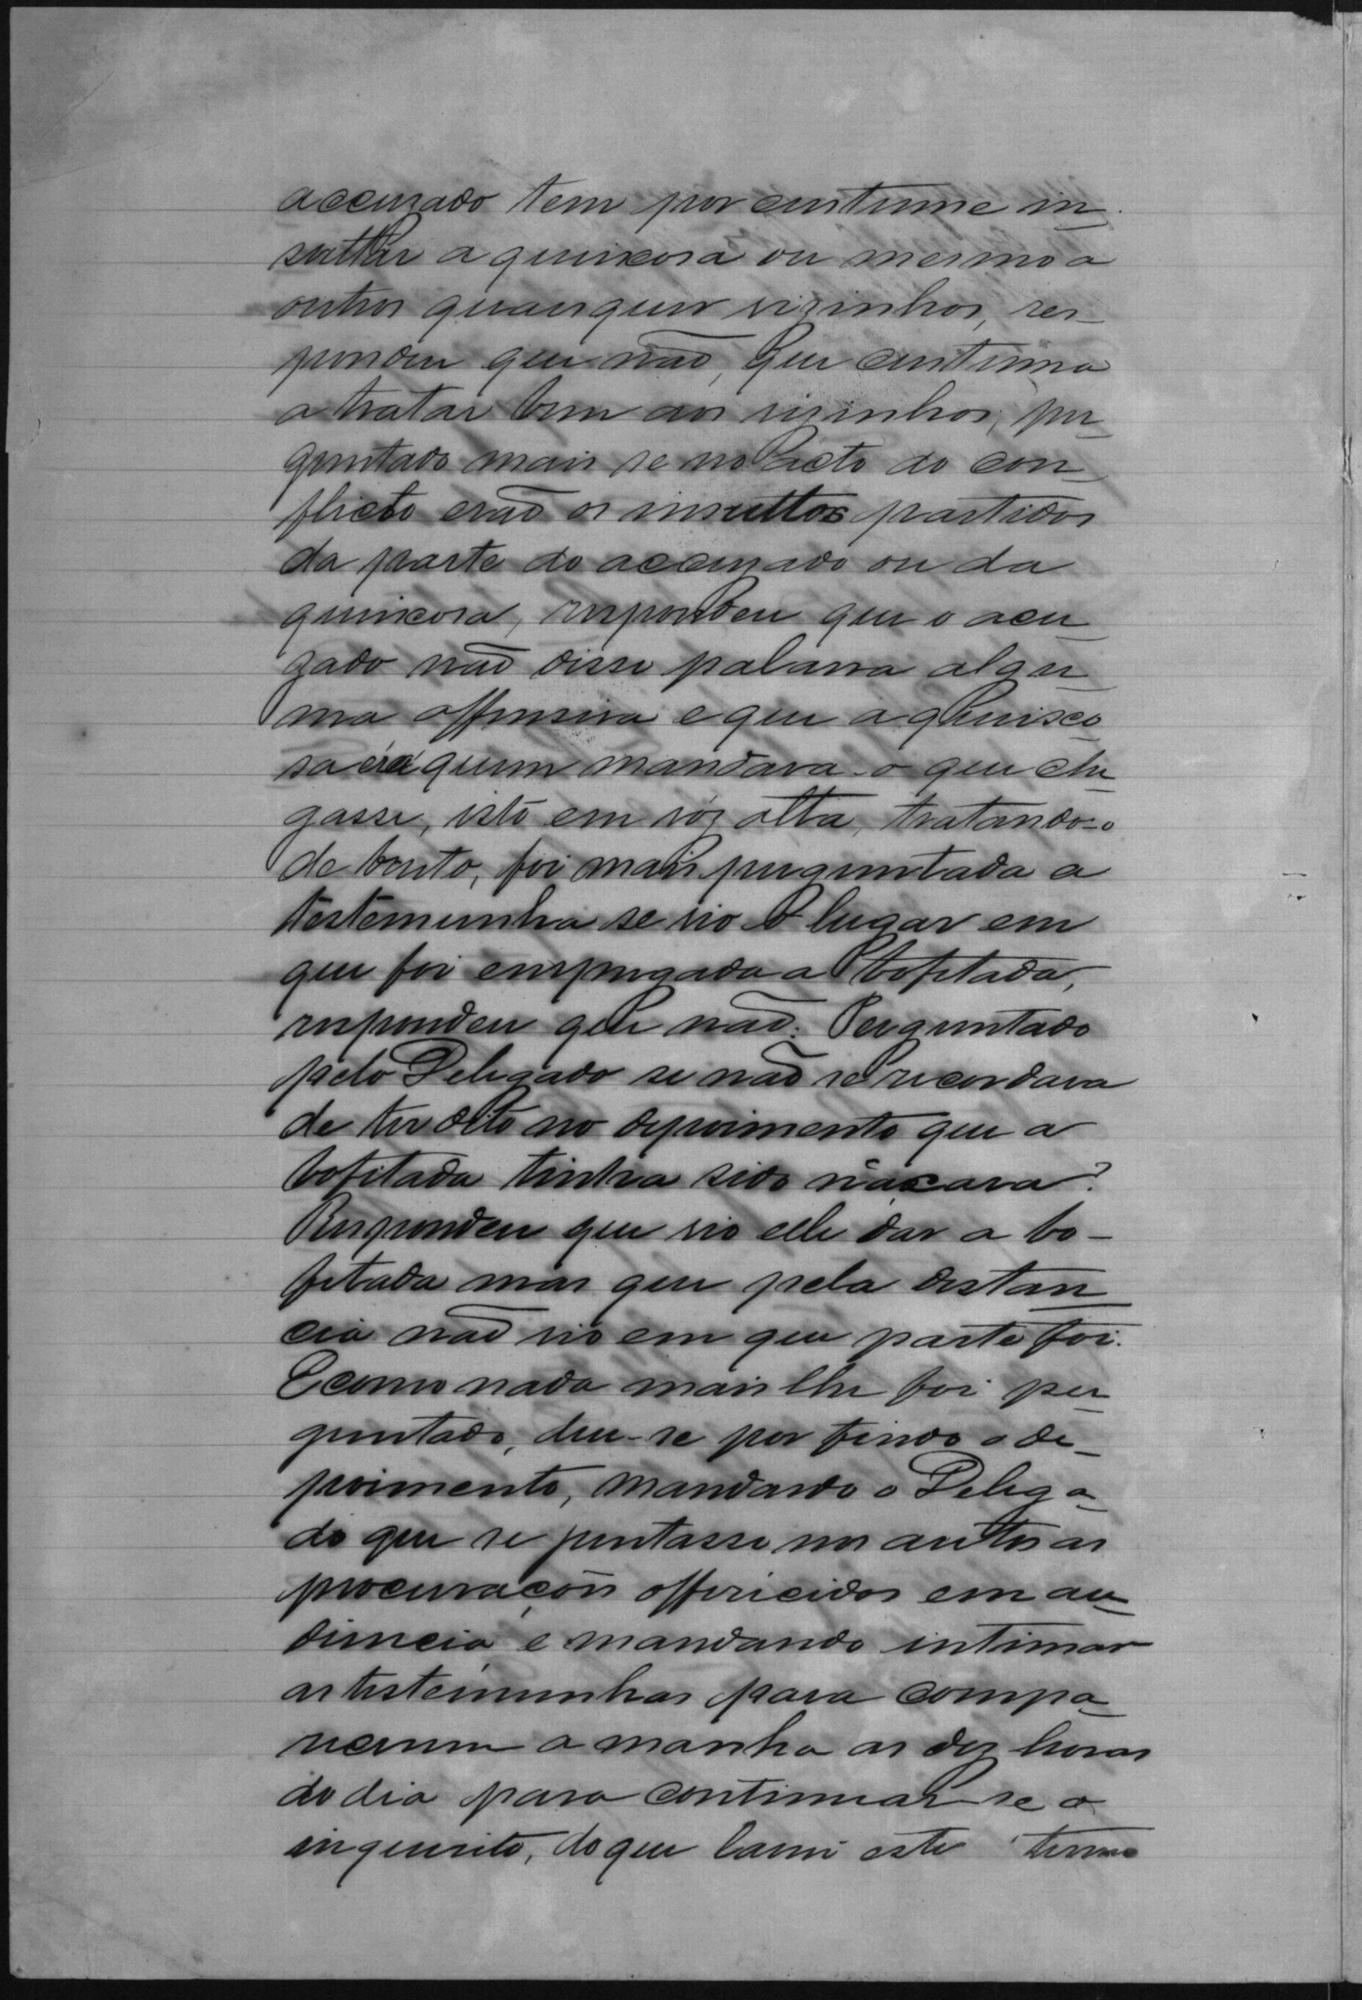 accuzado tem por custume in-
sultar a queixosa ou mesmo a
outros quaesquer vizinhos, res-
pondeu que não, que custuma
a tratar bem aos vizinhos, per-
guntado mais se no acto do con-
flicto erão os insultos partidos
da parte do accuzado ou da
queixosa, respondeu que o acu-
zado não disse palavra algu-
ma offensiva e que a queixo
sa éra quem mandava-o que che-
gasse, isto em vóz alta, tratando-o
de bouto, foi mais perguntada a
testemunha se vio o lugar em
que foi empregada a bofetada,
respondeu que não. Perguntado
pelo Delegado se não se recordava
de ter dito no depoimento que a
bofetada tinha sido na cara?
Respondeu que vio elle dar a bo-
fetada mas que pela distan
cia não vio em que parte foi.
E como nada mais lhe foi per-
guntado, deu-se por findo o de-
poimento, mandando o Delega-
do que se juntasse nos autos as
procurações offericidos em au-
diencia, e mandando intimar
as testemunhas para compa-
recerem a manhã as dez horas
do dia para continuar-se o
inquerito, do que lavrei este termo